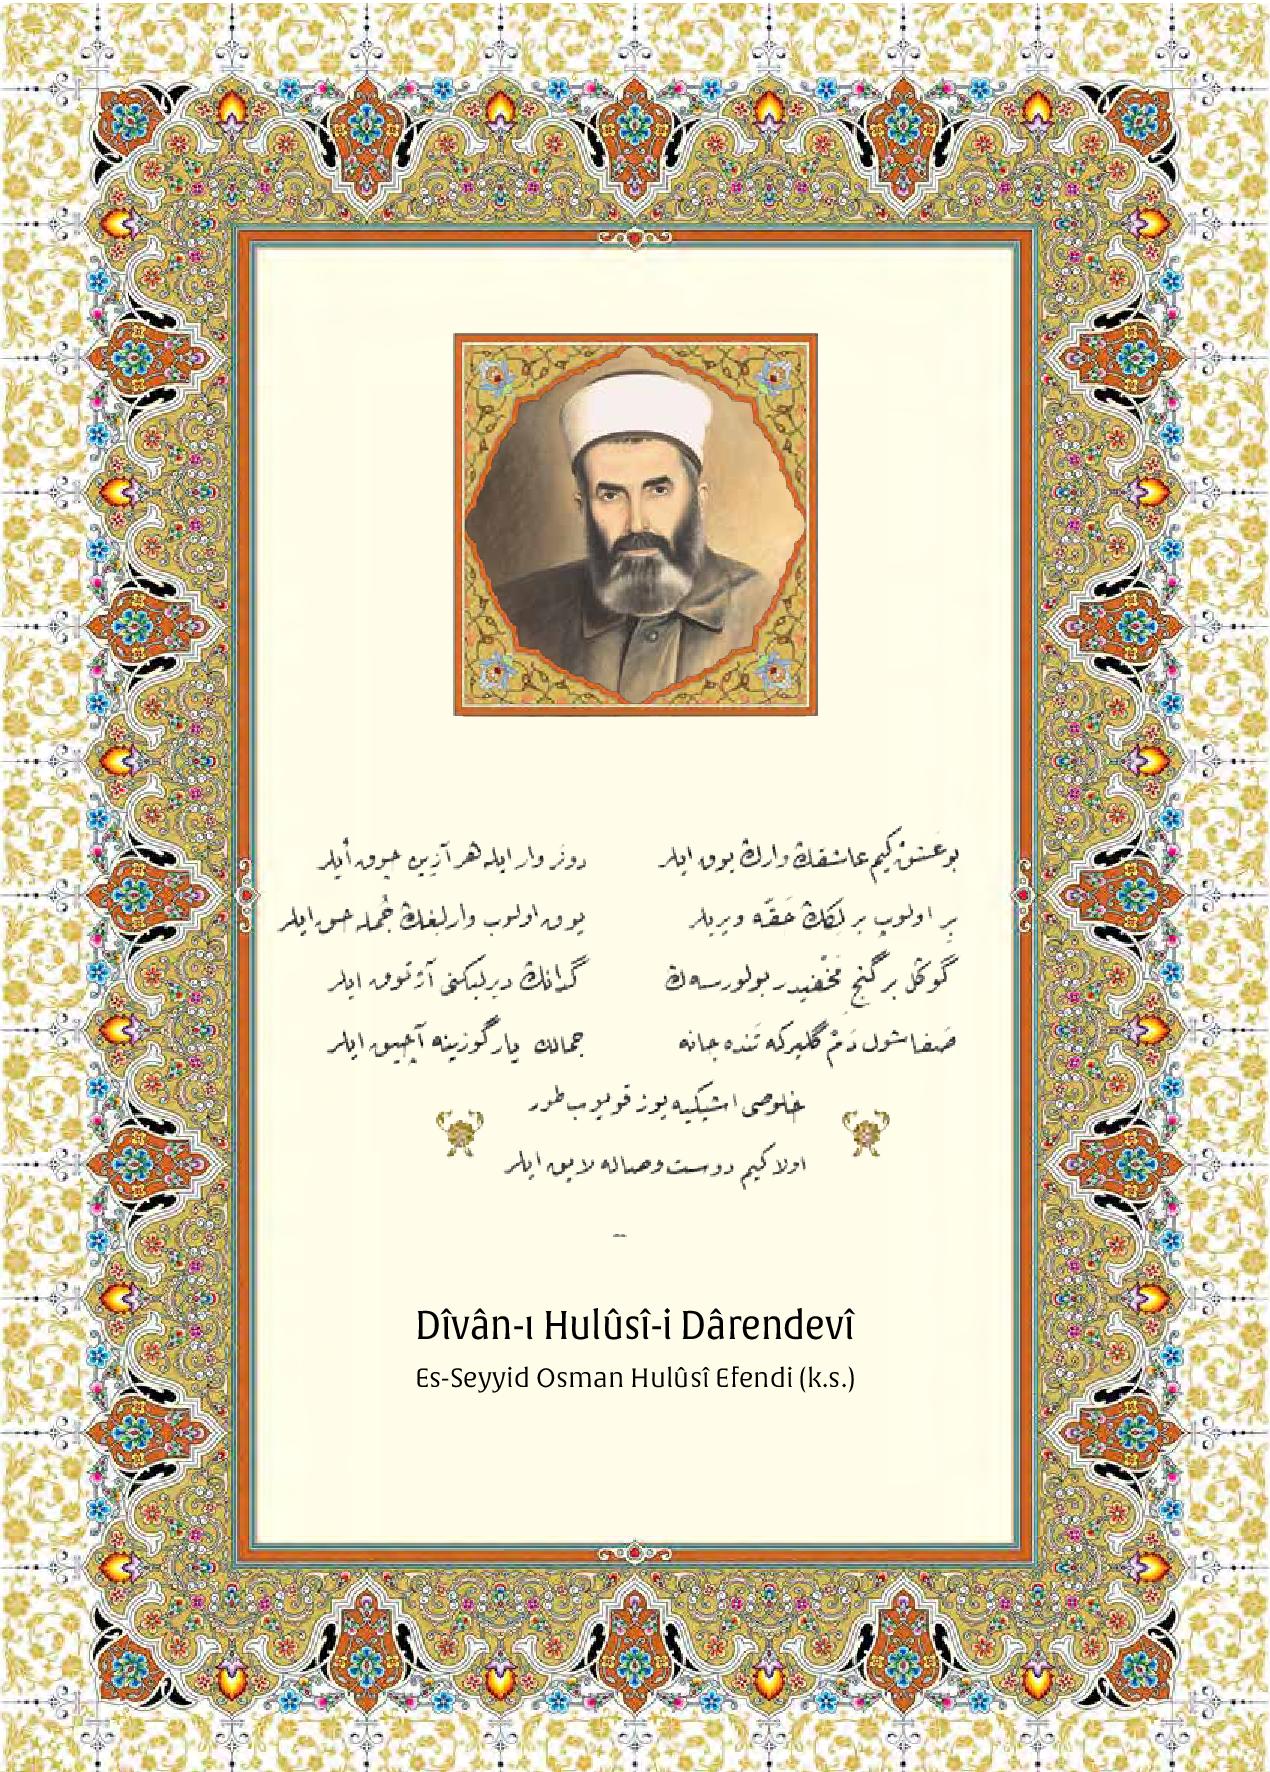 بو عشق كیم عاشقڭ وارڭ یوق ایلر دونر وار ایله هر آزین چوق ایلر
بر اولوب برلكڭ حقّه ویریلر یوق اولوب وارلیغڭ جمله حق ایلر
گوڭل بر گنج مخفیدر بولورسه‌ڭ گدانڭ
صفا شول دم گلیركه تنده جانه جمالڭ یار گوزینه آچیق ایلر
خلوصی اشیگیه یوز قویوب طور
اولا كیم دوست وصاله لایق ایلر
Dîvân-ı Hulûsî-i Dârendevî
Es-Seyyid Osman Hulûsî Efendi (k.s.)